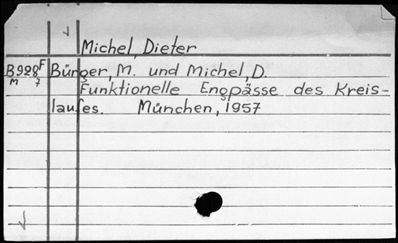 Michel, Dieter
B928F Bürger, M. und Michel, D.
M 7 Funktionelle Engpässe des Kreis-
laufes. München, 1957